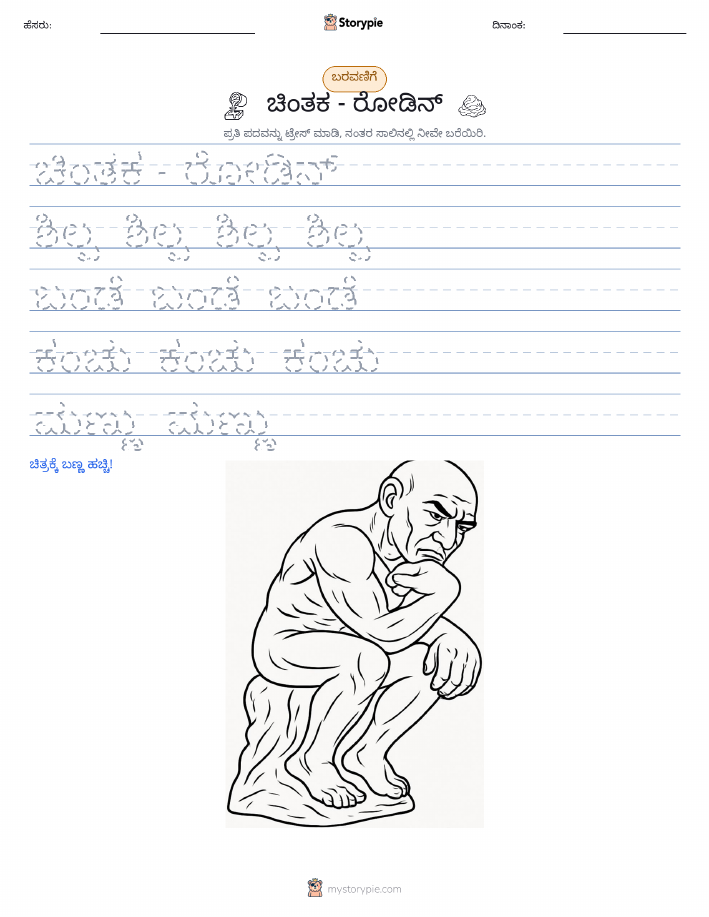 ಹೆಸರು:
Storypie
ದಿನಾಂಕ:
ಬರವಣಿಗೆ
ಚಿಂತಕ - ರೋಡಿನ್
ಪ್ರತಿ ಪದವನ್ನು ಟ್ರೇಸ್ ಮಾಡಿ, ನಂತರ ಸಾಲಿನಲ್ಲಿ ನೀವೇ ಬರೆಯಿರಿ.
ಚಿಂತಕ - ರೋಡಿನ್
ಶಿಲ್ಪ ಶಿಲ್ಪ ಶಿಲ್ಪ ಶಿಲ್ಪ
ಬಂಡೆ ಬಂಡೆ ಬಂಡೆ
ಕಂಚು ಕಂಚು ಕಂಚು
ಮಣ್ಣು ಮಣ್ಣು
ಚಿತ್ರಕ್ಕೆ ಬಣ್ಣ ಹಚ್ಚಿ!
mystorypie.com